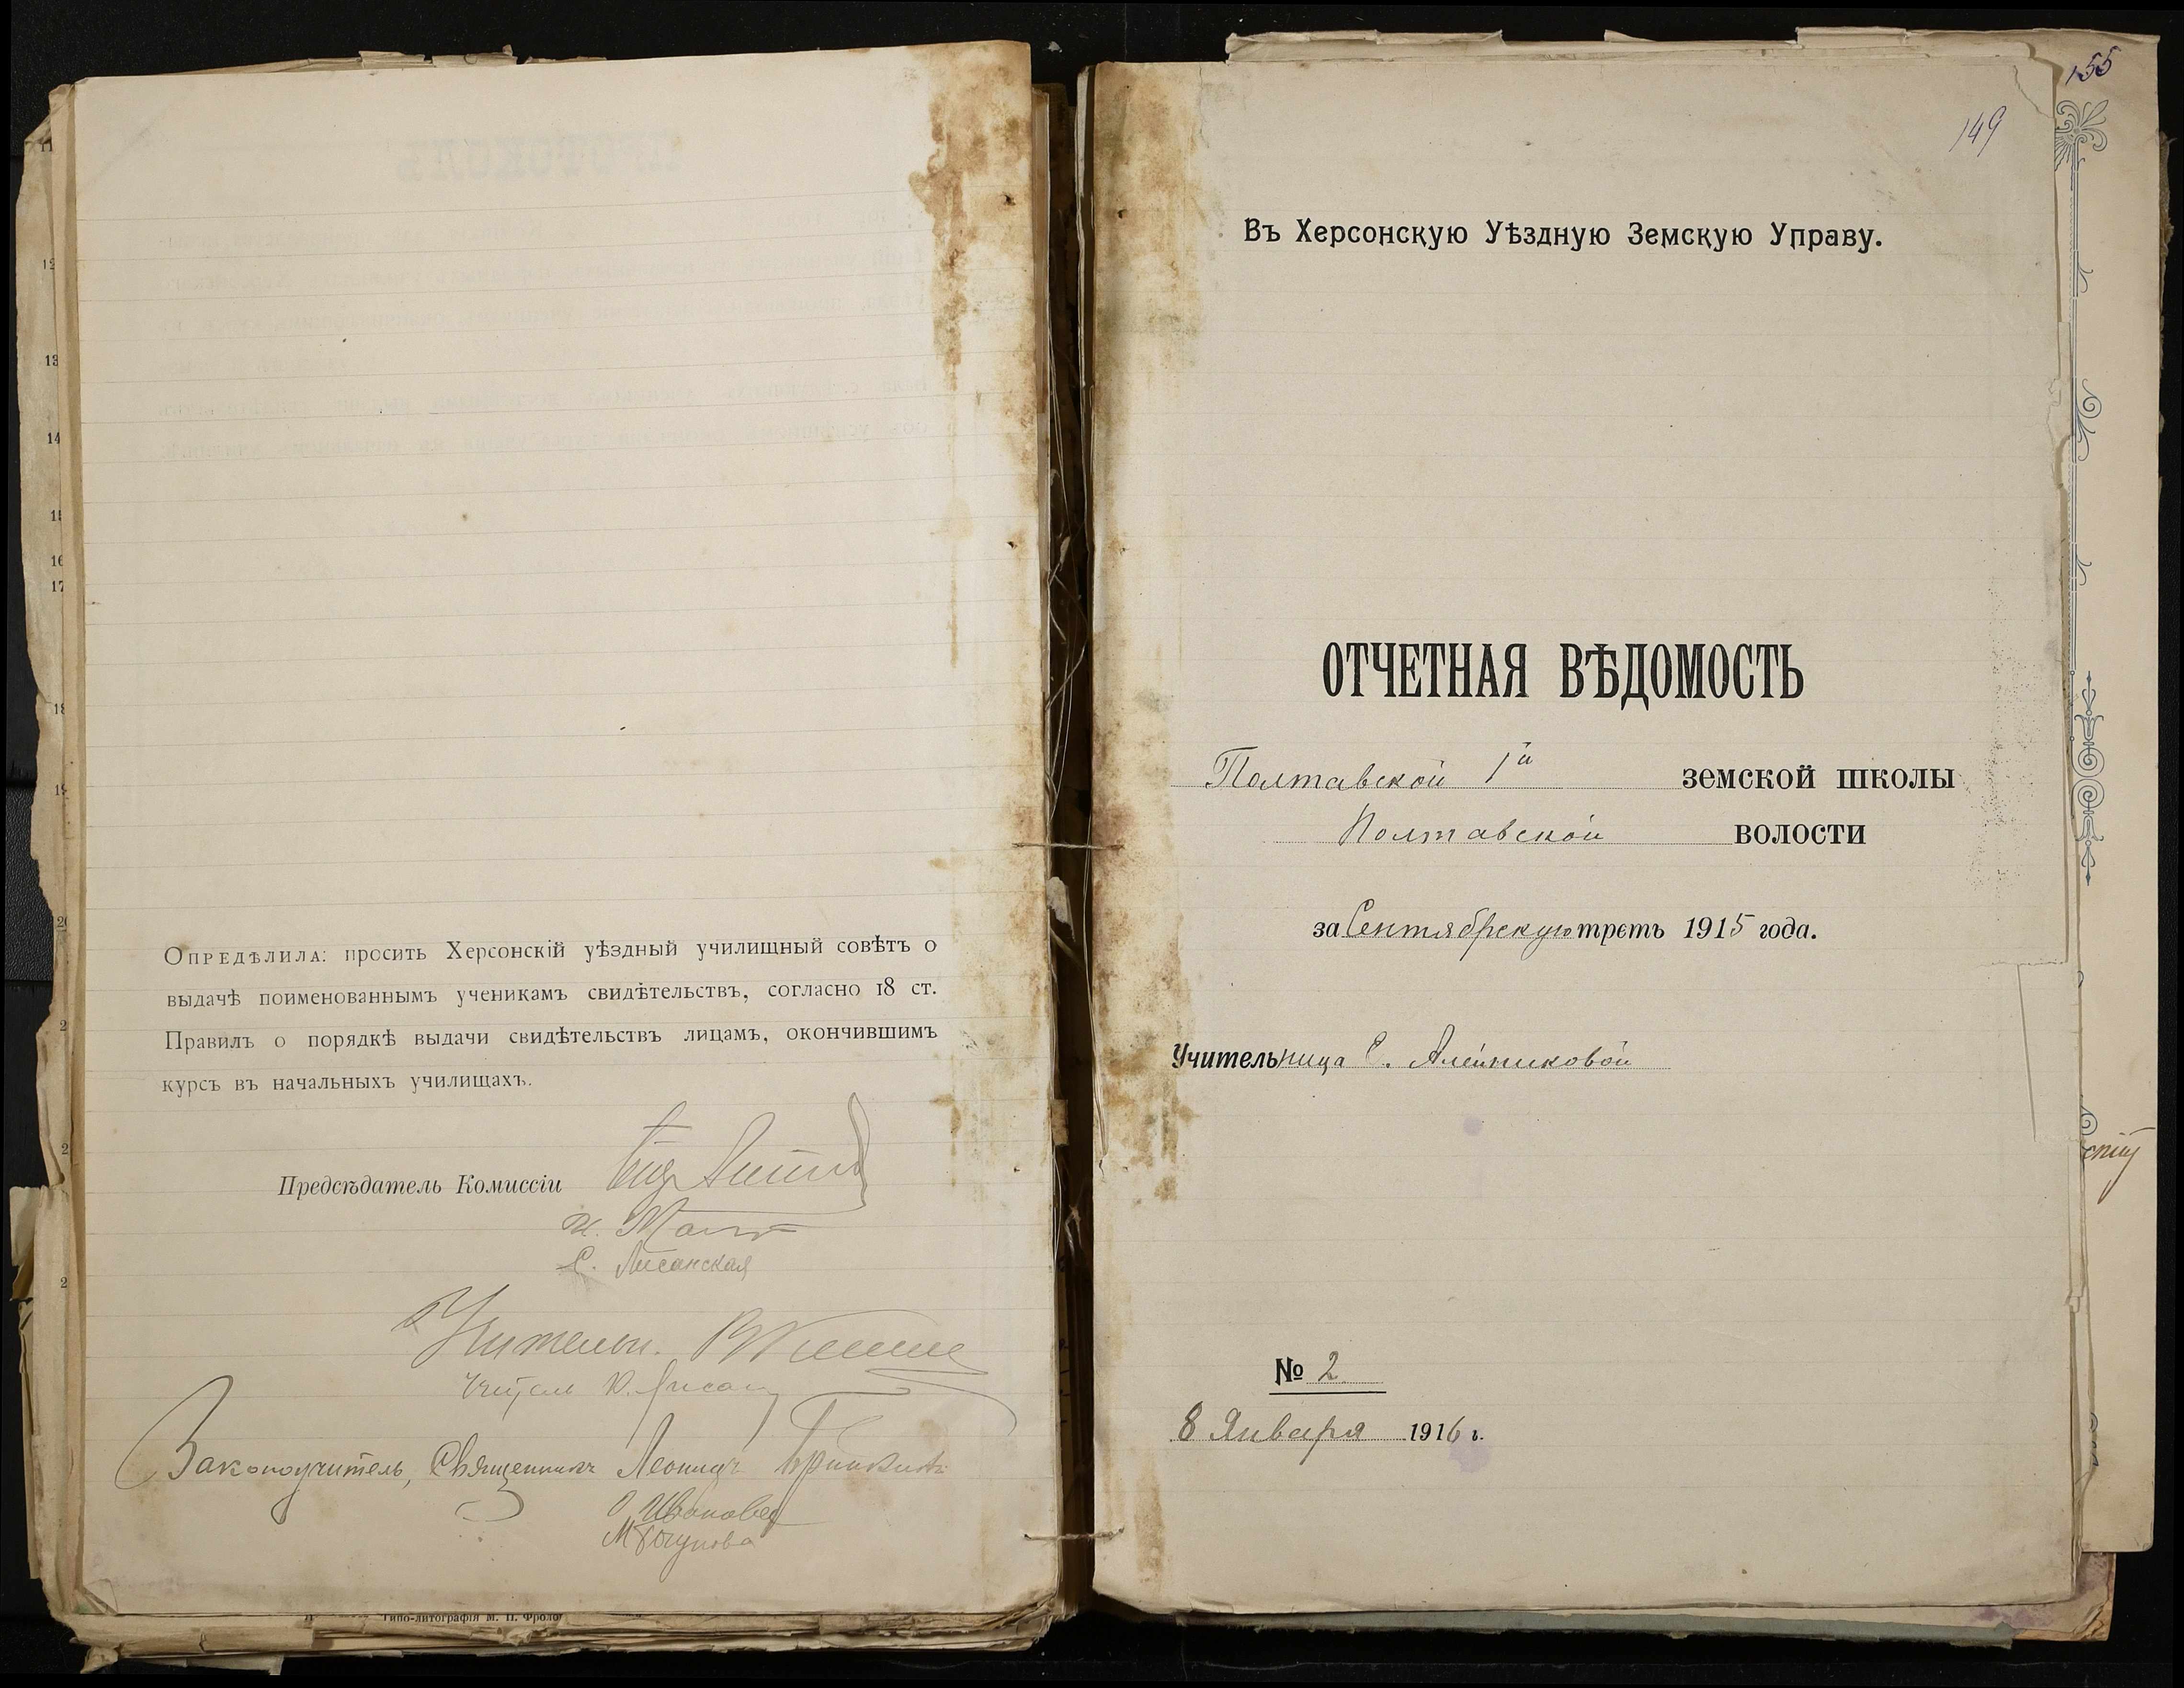 Опредѣлила: просить Херсонскій уѣздный училищный совѣтъ о
выдачѣ поименованнымъ ученикамъ свидѣтельствъ, согласно 18 ст.
Правилъ о порядкѣ выдачи свидѣтельствъ лицамъ, окончившимъ
курсъ въ начальныхъ училищахъ.
Предсѣдатель Комиссіи
С. Лисанская
Законоучитель, Священникъ Леонидъ
Типо-литографія М. П. Фроло
155
149
Въ Херсонскую Уѣздную Земскую Управу.
ОТЧЕТНАЯ ВѢДОМОСТЬ
Полтавской 1й земской школы
Полтавской волости
за Сентябрскую треть 1915 года.
Учительница С. Алейниковой
№ 2
8 Января 1916 г.